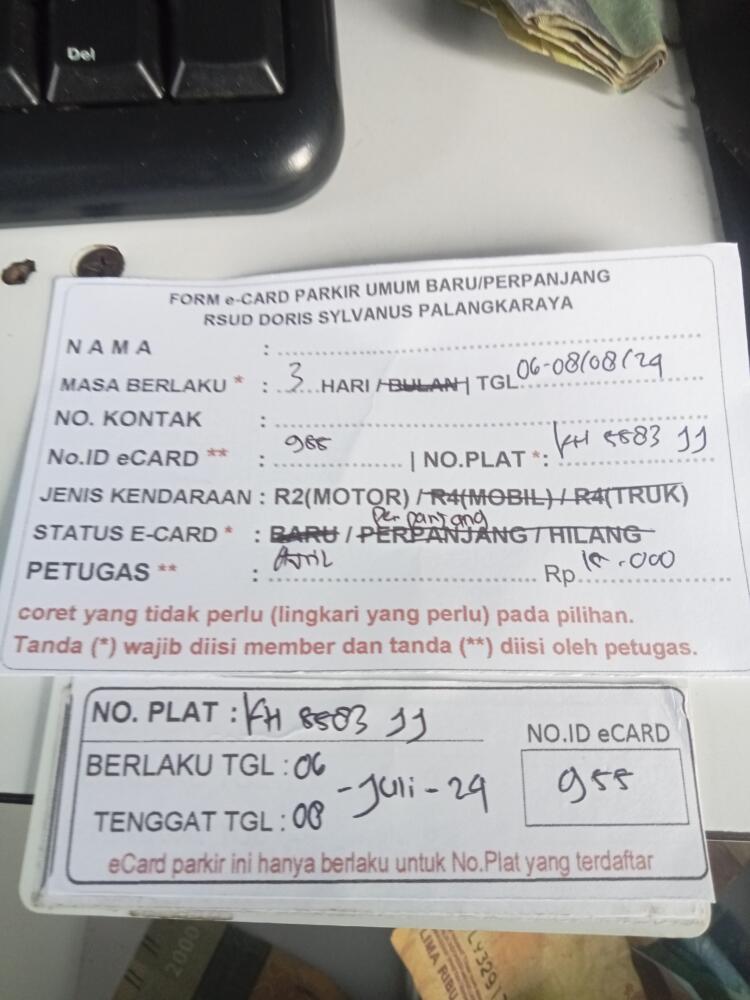 Del
FORM e-CARD PARKIR UMUM BARU/PERPANJANG
RSUD DORIS SYLVANUS PALANGKARAYA
N A M A :
MASA BERLAKU * : 3 HARI / BULAN | TGL 06-08/08/24
NO. KONTAK :
No.ID eCARD ** : 955 | NO.PLAT *: KH 5583 JJ
JENIS KENDARAAN : R2(MOTOR) / R4(MOBIL) / R4(TRUK)
Perpanjang
STATUS E-CARD * : BARU / PERPANJANG / HILANG
PETUGAS ** : Rp .000
coret yang tidak perlu (lingkari yang perlu) pada pilihan.
Tanda (*) wajib diisi member dan tanda (**) diisi oleh petugas.
NO. PLAT : KH 5583 JJ
NO.ID eCARD
BERLAKU TGL : 06
955
- Juli - 24
TENGGAT TGL : 08
eCard parkir ini hanya berlaku untuk No.Plat yang terdaftar
2000
LIMA RIBU